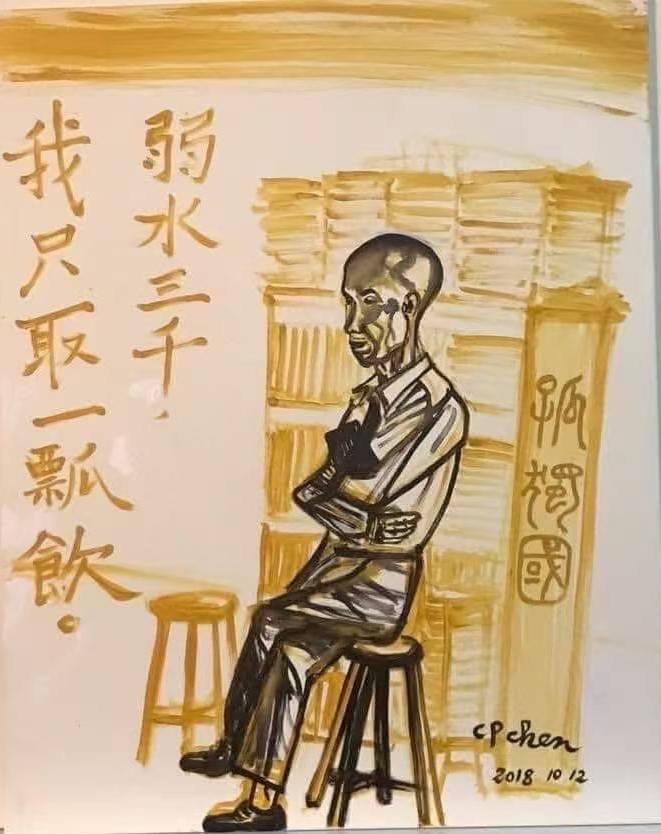 弱水三千,
我只取一瓢飲。
孤獨國
CP chen
2018 10 12